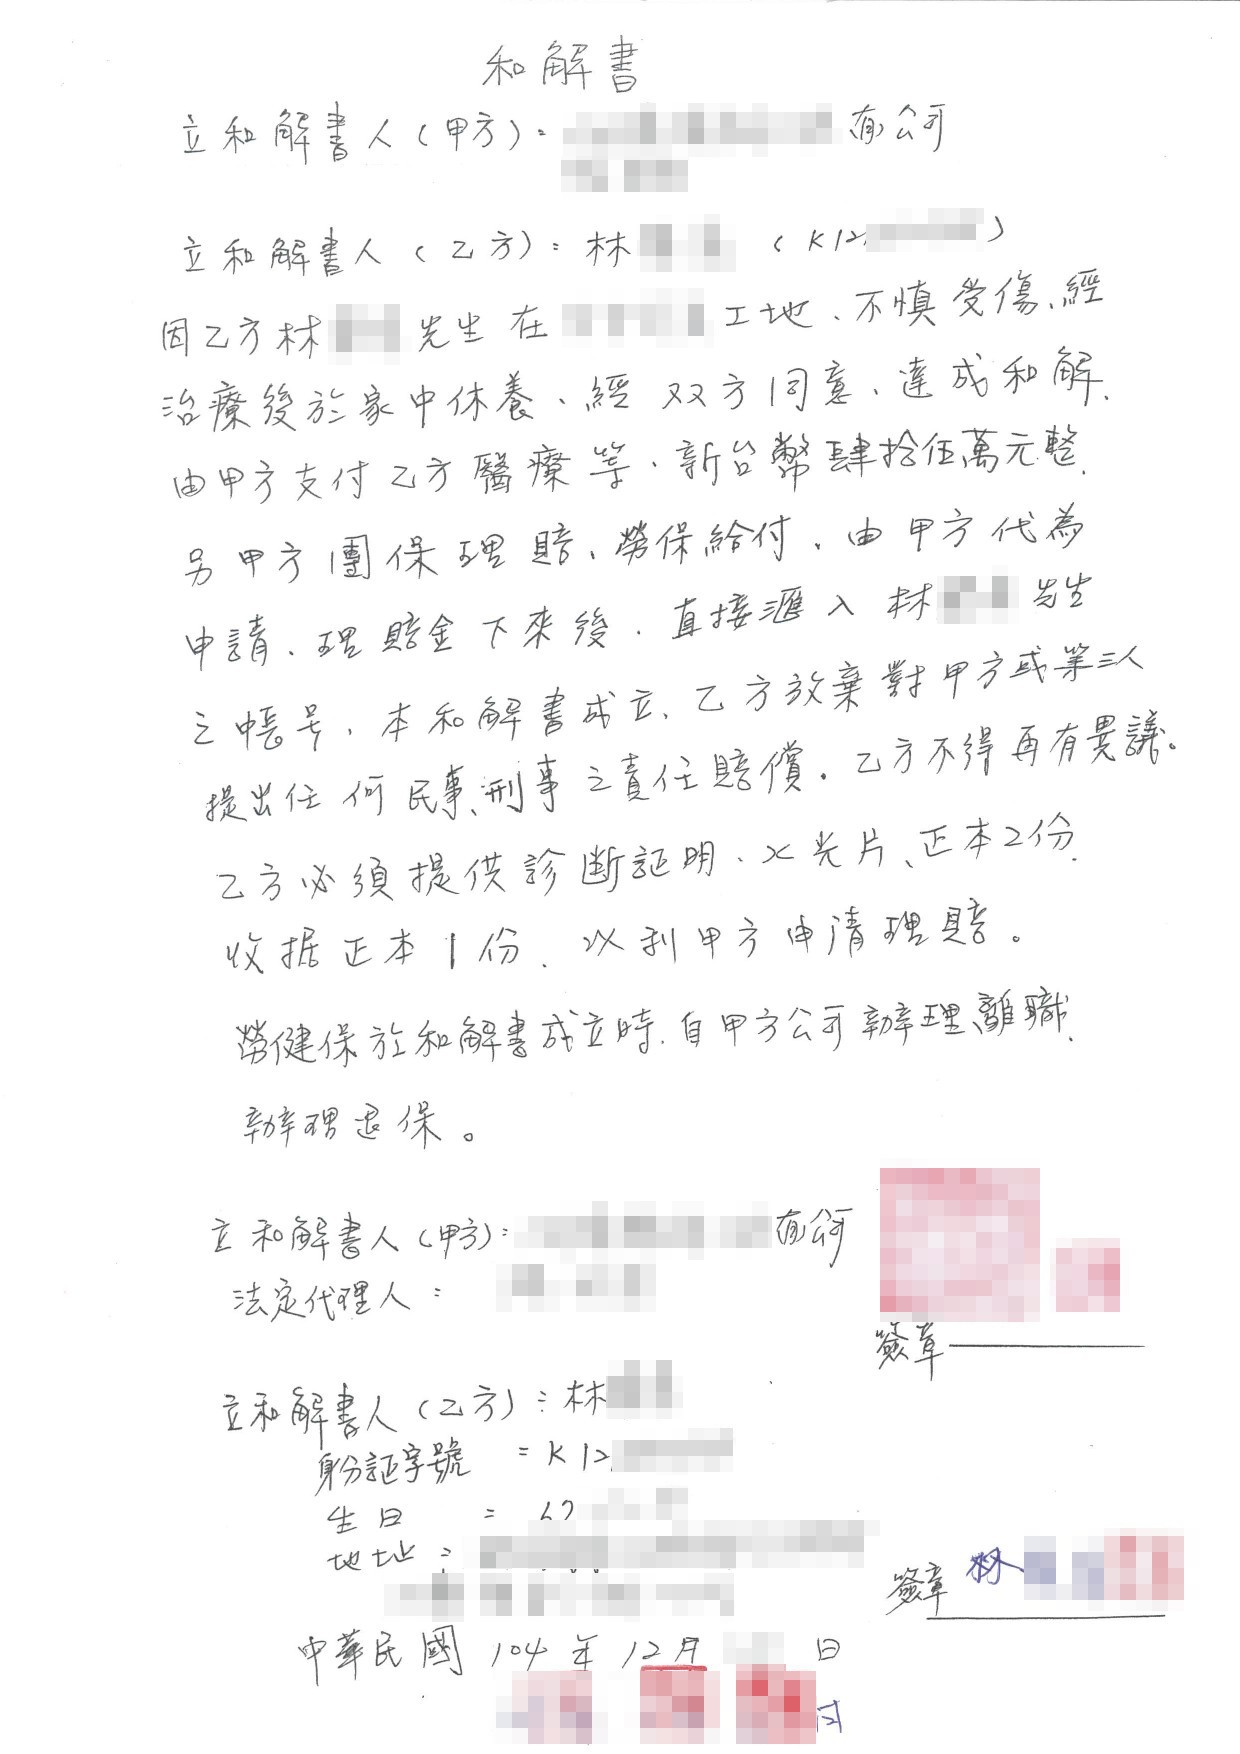 和解書
立和解書人(甲方): 有公司
立和解書人(乙方): 林 (K12 )
因乙方林 先生在 工地、不慎受傷、經
治療後於家中休養、經双方同意、達成和解、
由甲方支付乙方醫療等、新台幣肆拾伍萬元整、
另甲方團保理賠、勞保給付、由甲方代為
申請、理賠金下來後、直接滙入林 先生
之帳号、本和解書成立、乙方放棄對甲方或第三人
提出任何民事、刑事之責任賠償。乙方不得再有異議。
乙方必須提供診断証明、X光片、正本2份、
收据正本1份、以利甲方申请理賠。
勞健保於和解書成立時、自甲方公司辦理離職、
辦理退保。
立和解書人(甲方): 有公司
法定代理人:
簽章
立和解書人(乙方):林
身分証字號 = K12
生日 = 62
地址:
簽章 林
中華民國 104 年 12月 日